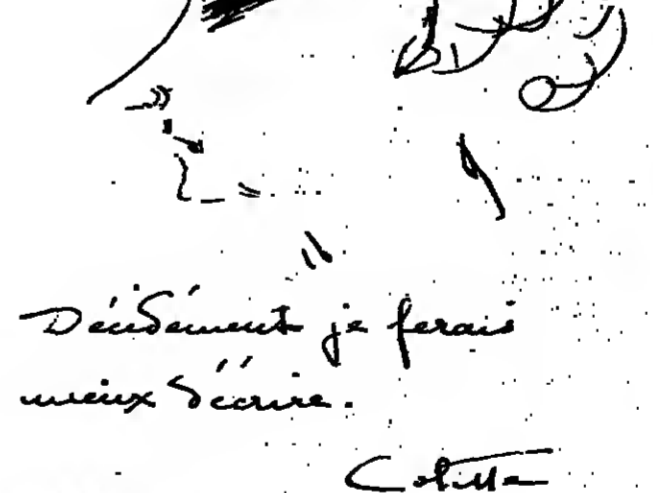 Décidément je ferais
mieux d'écrire.
Colette